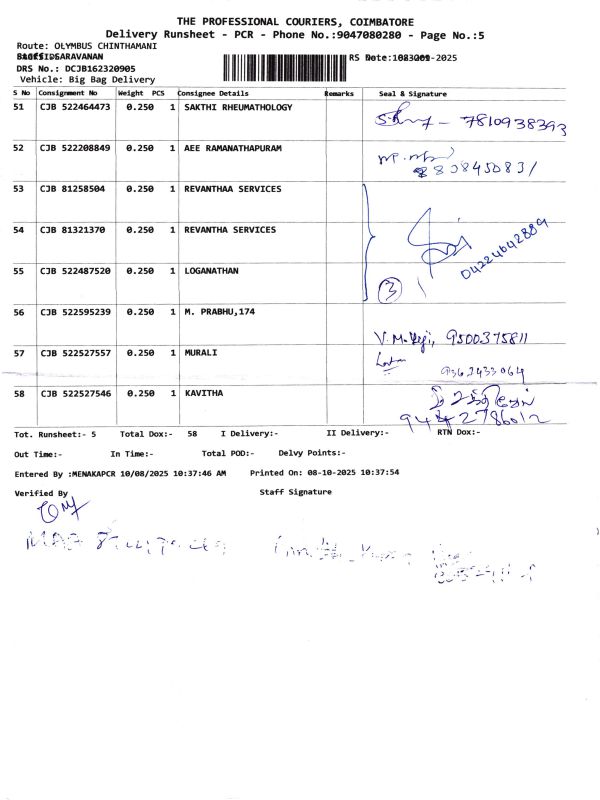 THE PROFESSIONAL COURIERS, COIMBATORE
Delivery Runsheet - PCR - Phone No.:9047080280 - Page No.:5
Route: OLYMBUS CHINTHAMANI
SARAVANAN RS -2025
DRS No.: DCJB162320905
Vehicle: Big Bag Delivery
S No Consignment No Weight PCS Consignee Details Remarks Seal & Signature
51 CJB 522464473 0.250 1 SAKTHI RHEUMATHOLOGY - 7810938393
52 CJB 522208849 0.250 1 AEE RAMANATHAPURAM
53 CJB 81258504 0.250 1 REVANTHAA SERVICES
54 CJB 81321370 0.250 1 REVANTHA SERVICES 04224642889
55 CJB 522487520 0.250 1 LOGANATHAN 3
56 CJB 522595239 0.250 1 M. PRABHU,174
9500375811
57 CJB 522527557 0.250 1 MURALI
9362433064
58 CJB 522527546 0.250 1 KAVITHA
9442786012
Tot. Runsheet:- 5 Total Dox:- 58 I Delivery:- II Delivery:- RTN Dox:-
Out Time:- In Time:- Total POD:- Delvy Points:-
Entered By :MENAKAPCR 10/08/2025 10:37:46 AM Printed On: 08-10-2025 10:37:54
Verified By Staff Signature